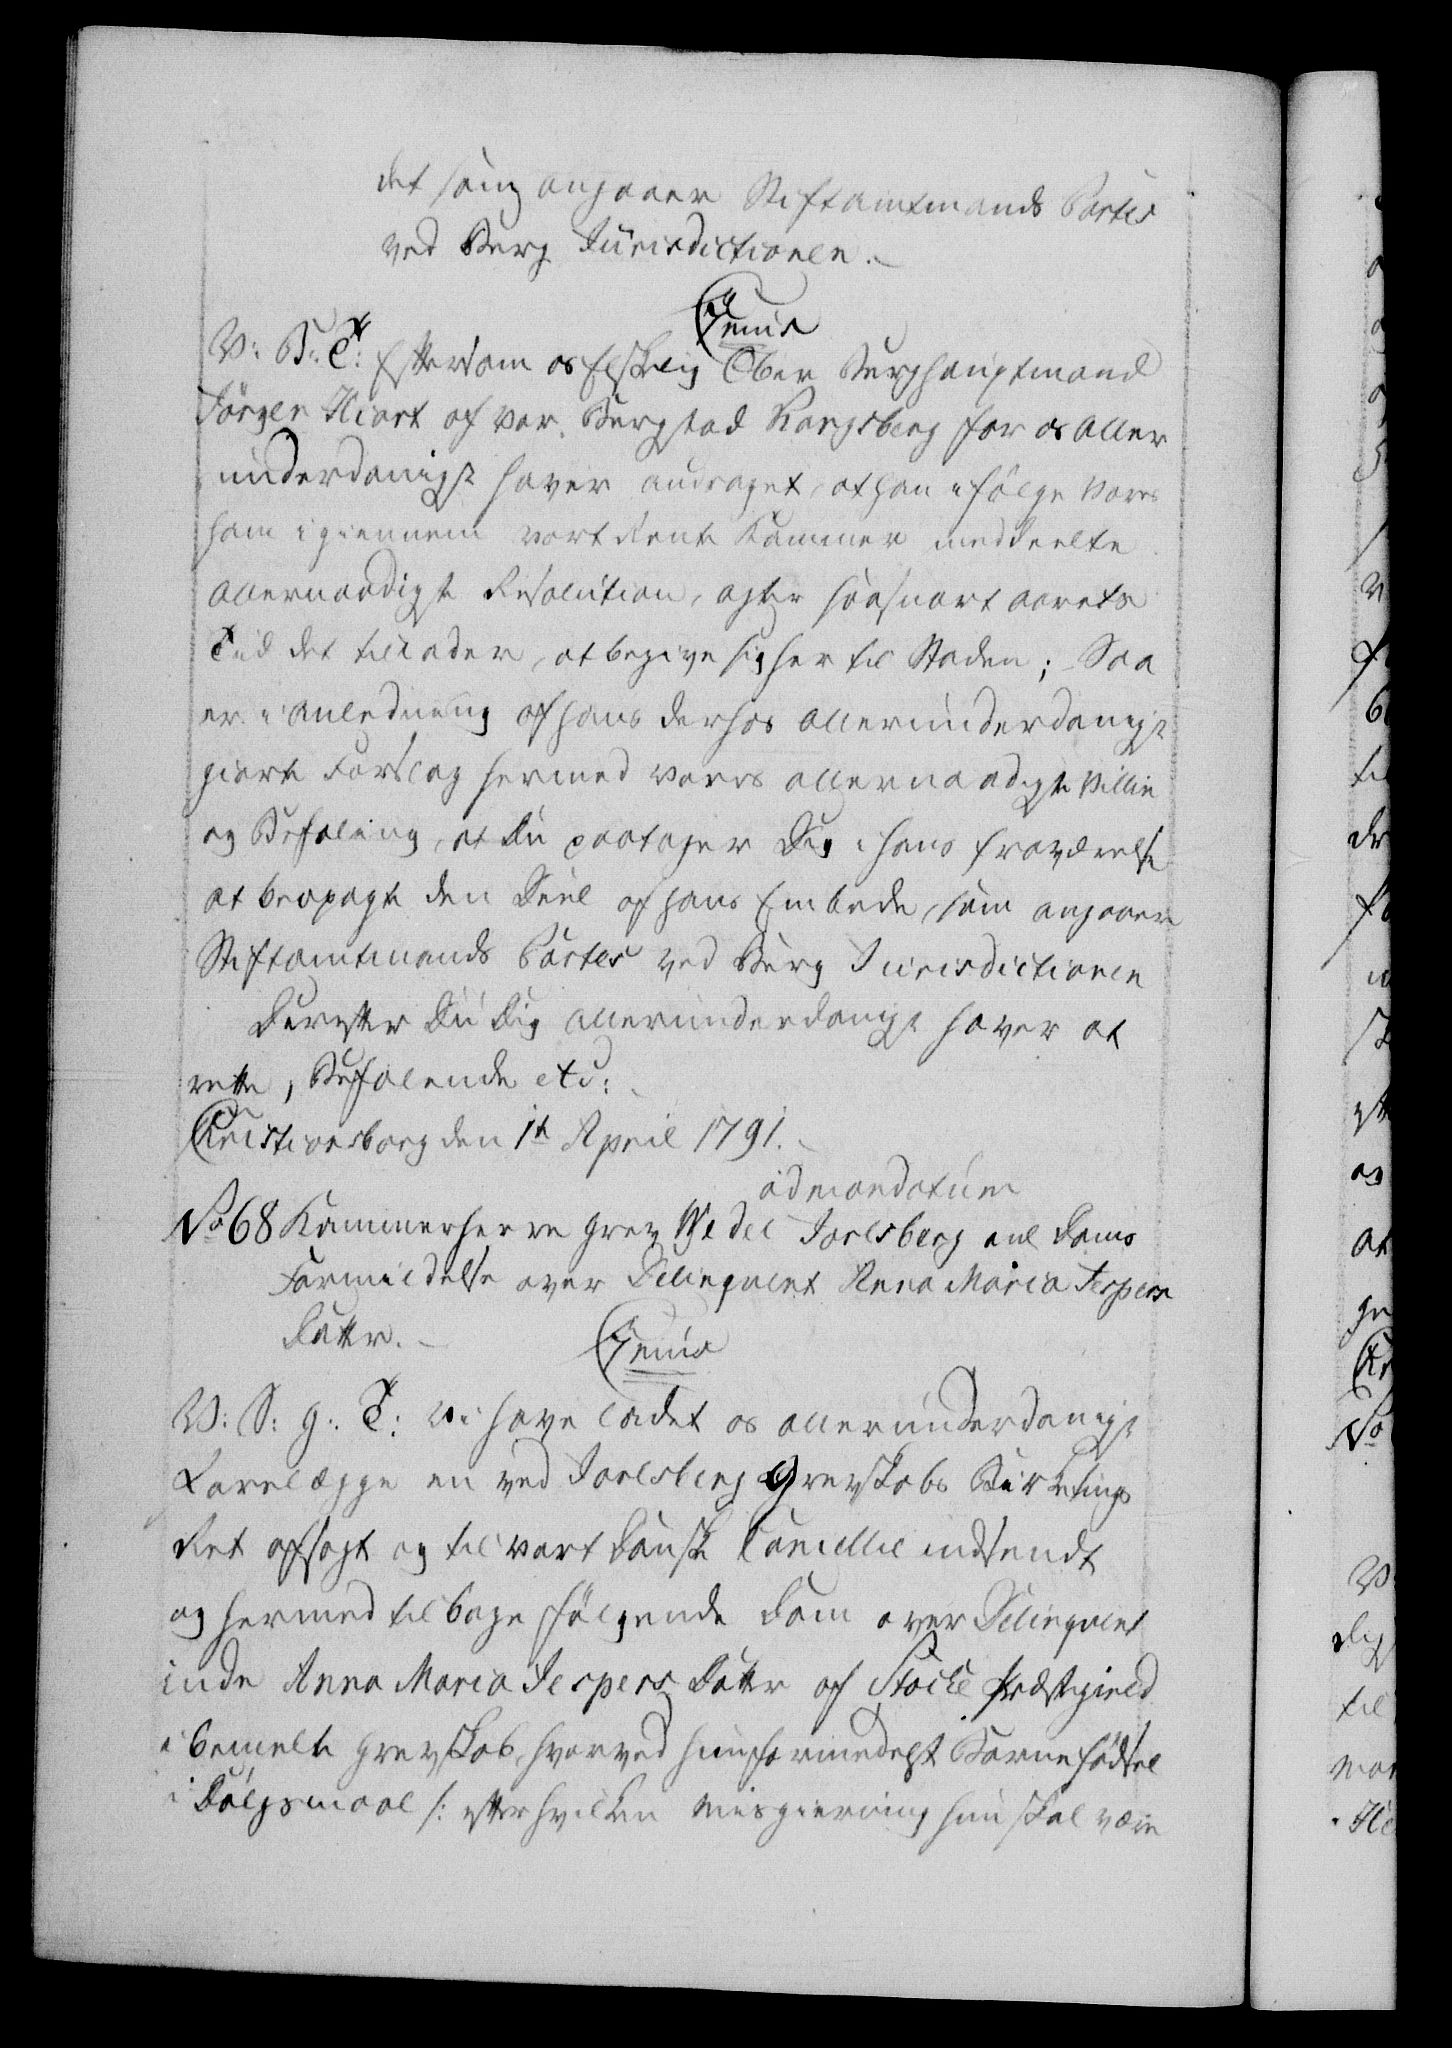 det som angaaer Stiftamtmands Partes
ved Berg Jurisdictionen.
Genis
V: B: T: Eftersom os Elskelig Ober Berghauptmand
Jørgen Hiort af vor Bergstad Kongsberg for os aller
underdanigst haver andraget, at han i følge Vores
ham igiennem vort Rente Kammer meddeelte
allernaadigste Resolution, agter saasnart aarets
Tid det tillader, at begive sig her til Staden; Saa
er i anledning af hans derhos allerunderdanigst
giorte Forslag hermed vores allernaadigste Villie
og Befaling, at Du paatager Dig i hans fraværelse
at beopagte den Deel af hans Embede, som angaaer
Stiftamtmands Partes ved Berg Jurisdictionen
Derefter Du Dig allerunderdanigst haver at
rette, Befalende etc:
Christiansborg den 1te April 1791.
ad mandatum
No 68 Kammerherre Grev Wedel Jarlsberg anl Doms
Formildelse over Delinquent Anna Maria Jespers
Datter.
Genis
V: S: G: T: Vi have ladet os allerunderdanigst
Forelægge en ved Jarlsberg Grevskabs Birketings
Ret afsagt og til vort Danske Cancellie indsendt
og hermed tilbage følgende Dom over Delinquent
inde Anna Maria Jespers Datter af Stocke Præstegield
i bemelte Grevskab, hvorved hun formedelst Barnefødsel
i Dølgsmaal /: efter hvilken misgierning hun skal være